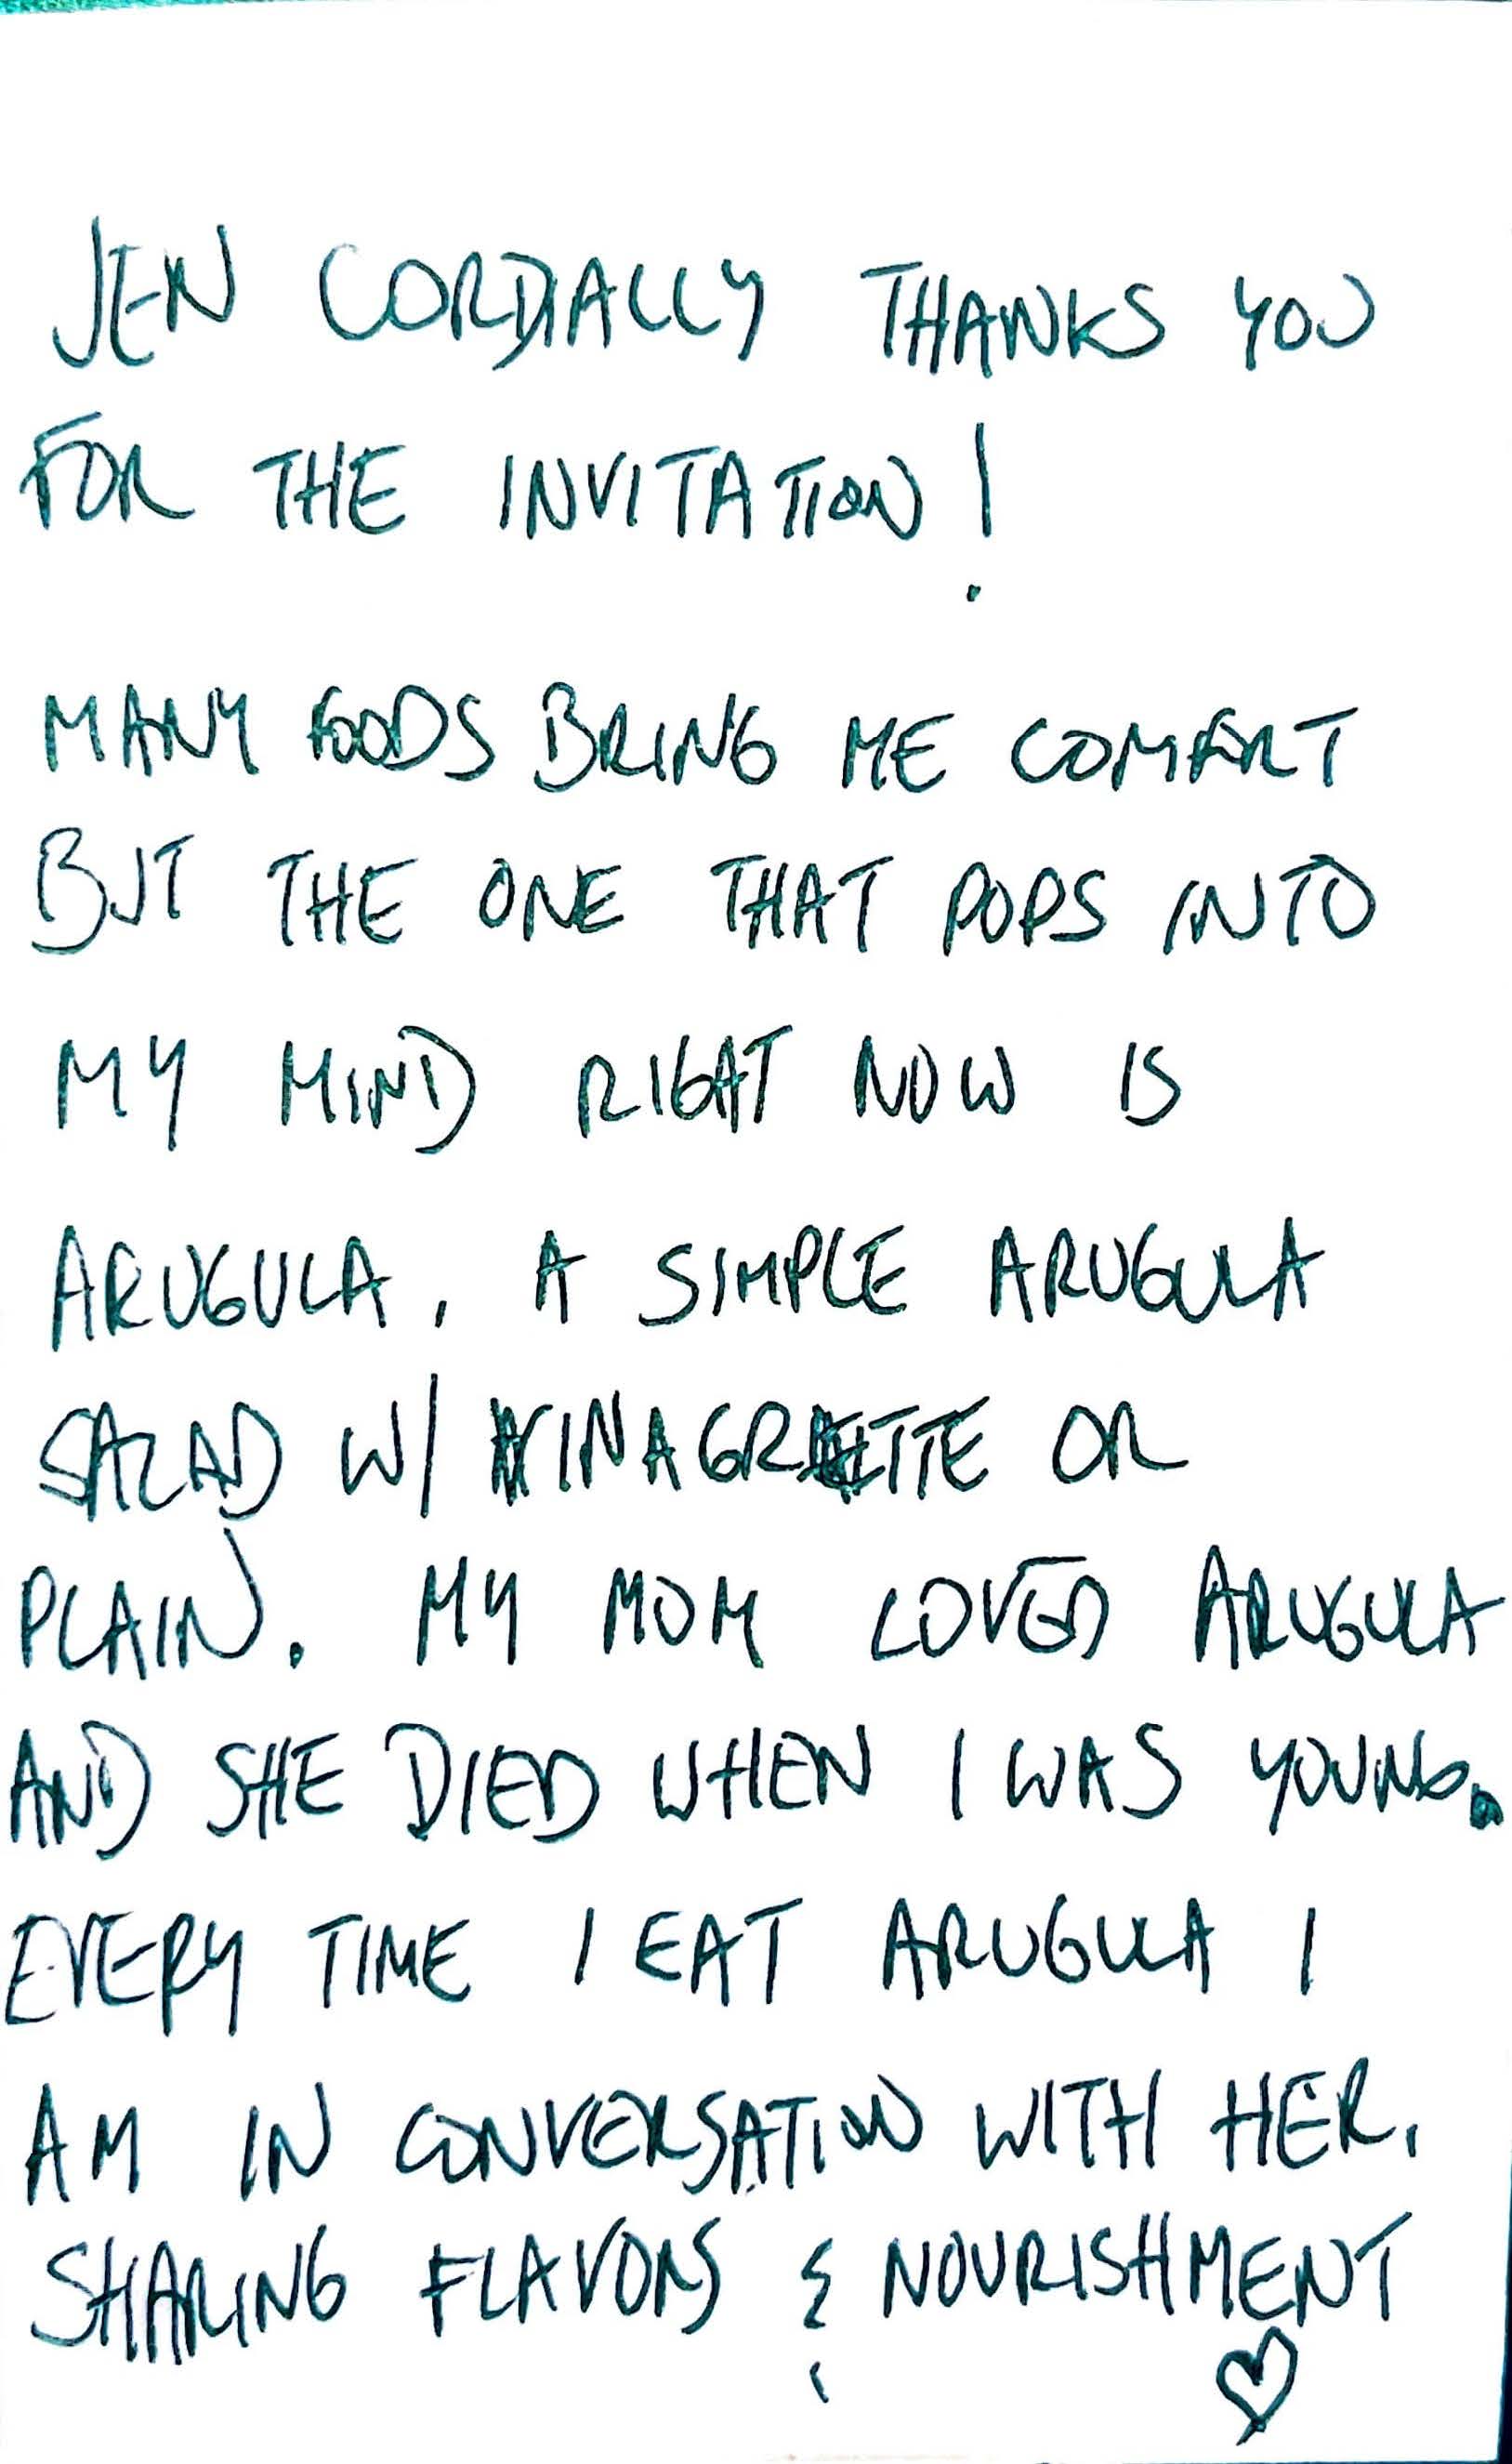 JEN CORDIALLY THANKS YOU
FOR THE INVITATION!
MANY FOODS BRING ME COMFORT
BUT THE ONE THAT POPS INTO
MY MIND RIGHT NOW IS
ARUGULA. A SIMPLE ARUGULA
SALAD W/ VINAGRETTE OR
PLAIN. MY MOM LOVED ARUGULA
AND SHE DIED WHEN I WAS YOUNG.
EVERY TIME I EAT ARUGULA I
AM IN CONVERSATION WITH HER.
SHARING FLAVORS & NOURISHMENT
♡